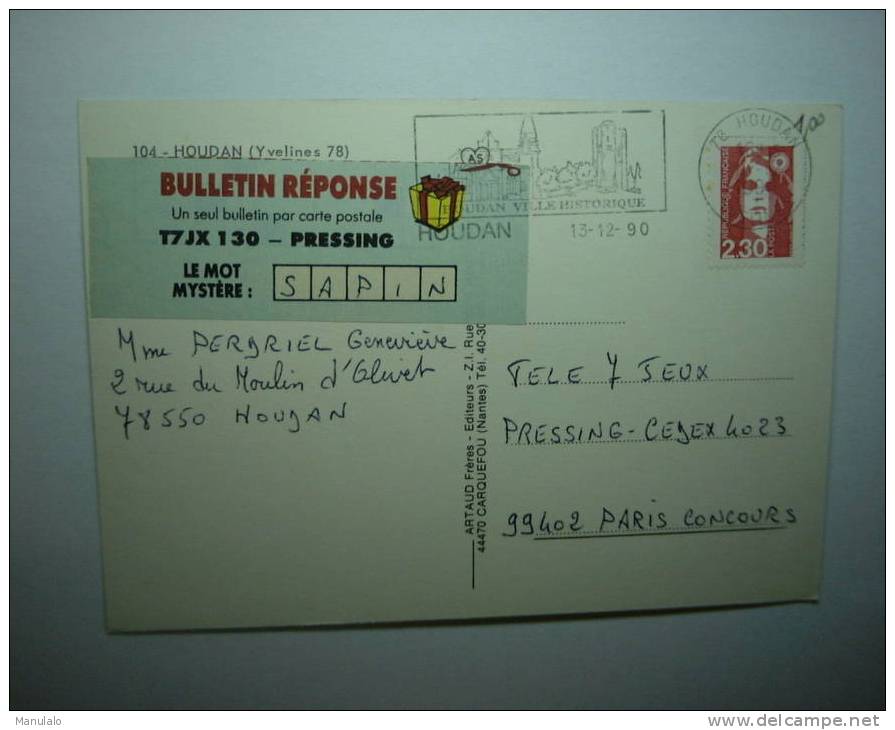 104 - HOUDAN (Yvelines 78)
BULLETIN RÉPONSE
Un seul bulletin par carte postale
T7JX 130 – PRESSING
LE MOT
MYSTÈRE :
SAPIN
AS
HOUDAN VILLE HISTORIQUE
HOUDAN 13-12-90
78 HOUDAN
1,00
REPUBLIQUE FRANÇAISE
LA POSTE
2,30
Mme PERDRIEL Geneviève
2 rue du Moulin d'Olivet
78550 HOUDAN
ARTAUD Frères - Editeurs - Z.I. Rue
44470 CARQUEFOU (Nantes) Tél. 40-30
TELE 7 JEUX
PRESSING-CEDEX 4023
99402 PARIS CONCOURS
Manulalo
www.delcampe.net